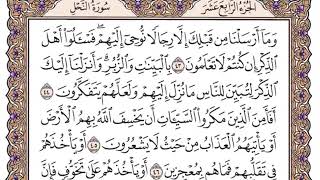 الجزء الرابع عشر سورة النحل
وَمَا أَرْسَلْنَا مِن قَبْلِكَ إِلَّا رِجَالًا نُّوحِي إِلَيْهِمْ ۖ فَسْـَٔلُوٓا۟ أَهْلَ
ٱلذِّكْرِ إِن كُنتُمْ لَا تَعْلَمُونَ ٤٣ بِٱلْبَيِّنَٰتِ وَٱلزُّبُرِ ۗ وَأَنزَلْنَآ إِلَيْكَ
ٱلذِّكْرَ لِتُبَيِّنَ لِلنَّاسِ مَا نُزِّلَ إِلَيْهِمْ وَلَعَلَّهُمْ يَتَفَكَّرُونَ ٤٤
أَفَأَمِنَ ٱلَّذِينَ مَكَرُوا۟ ٱلسَّيِّـَٔاتِ أَن يَخْسِفَ ٱللَّهُ بِهِمُ ٱلْأَرْضَ
أَوْ يَأْتِيَهُمُ ٱلْعَذَابُ مِنْ حَيْثُ لَا يَشْعُرُونَ ٤٥ أَوْ يَأْخُذَهُمْ
فِى تَقَلُّبِهِمْ فَمَا هُم بِمُعْجِزِينَ ٤٦ أَوْ يَأْخُذَهُمْ عَلَىٰ تَخَوُّفٍ فَإِنَّ